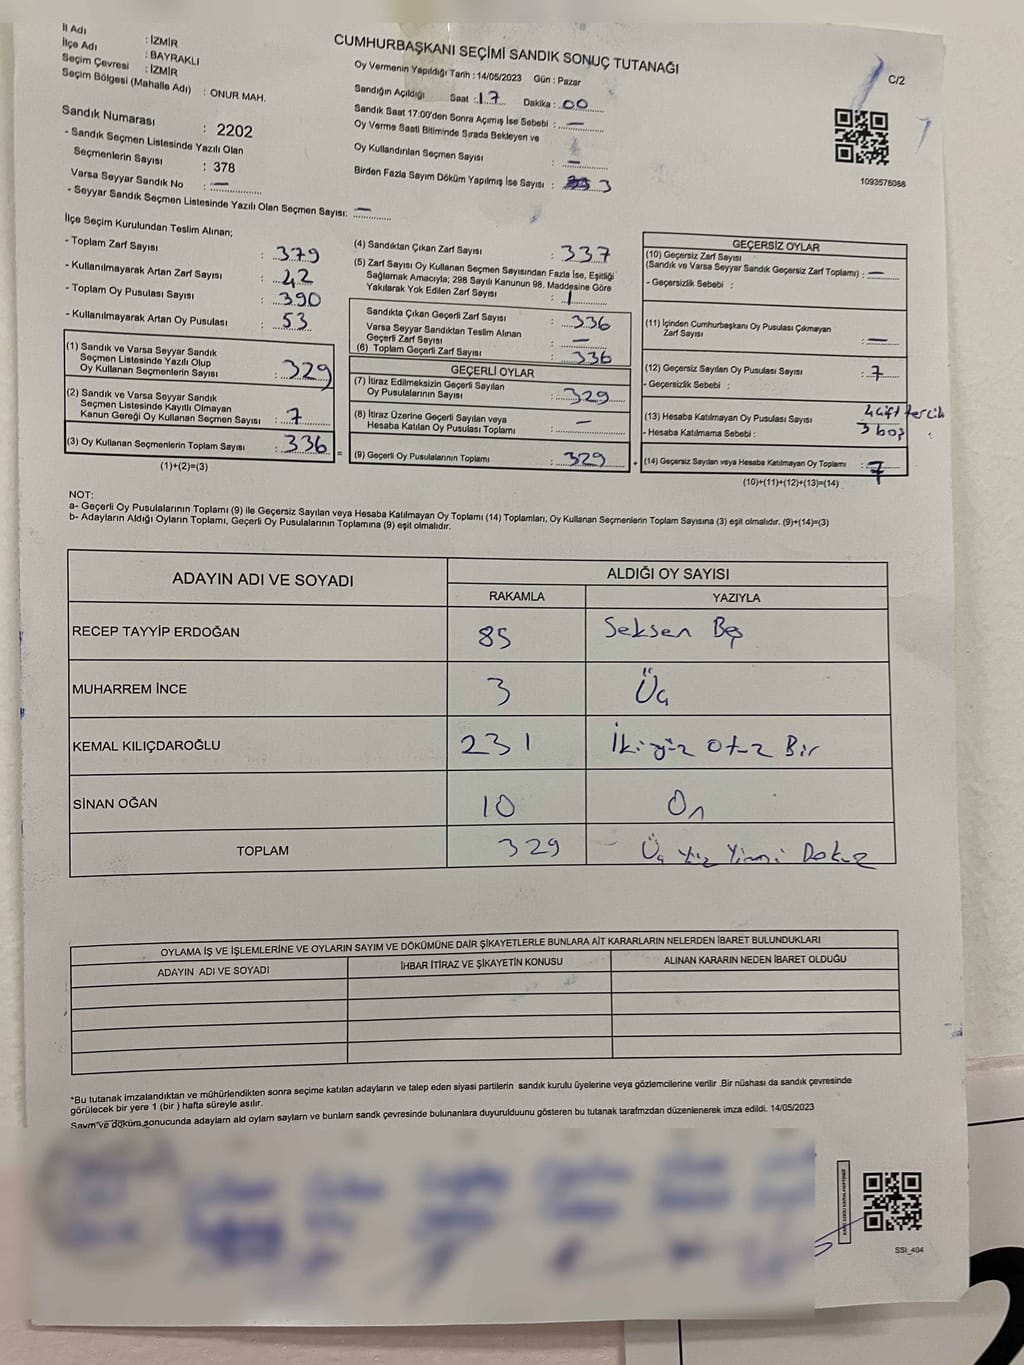 İl Adı : İZMİR
İlçe Adı : BAYRAKLI
Seçim Çevresi : İZMİR
Seçim Bölgesi (Mahalle Adı) : ONUR MAH.
Sandık Numarası : 2202
- Sandık Seçmen Listesinde Yazılı Olan
Seçmenlerin Sayısı : 378
Varsa Seyyar Sandık No : —
- Seyyar Sandık Seçmen Listesinde Yazılı Olan Seçmen Sayısı: —
CUMHURBAŞKANI SEÇİMİ SANDIK SONUÇ TUTANAĞI
Oy Vermenin Yapıldığı Tarih : 14/05/2023 Gün : Pazar
Sandığın Açıldığı Saat : 17 Dakika : 00
Sandık Saat 17:00'den Sonra Açımış İse Sebebi : —
Oy Verme Saati Bitiminde Sırada Bekleyen ve
Oy Kullandırılan Seçmen Sayısı : —
Birden Fazla Sayım Döküm Yapılmış İse Sayısı : 3
C/2
1093576088
İlçe Seçim Kurulundan Teslim Alınan;
- Toplam Zarf Sayısı : 379
- Kullanılmayarak Artan Zarf Sayısı : 42
- Toplam Oy Pusulası Sayısı : 390
- Kullanılmayarak Artan Oy Pusulası : 53
(1) Sandık ve Varsa Seyyar Sandık
Seçmen Listesinde Yazılı Olup
Oy Kullanan Seçmenlerin Sayısı : 329
(2) Sandık ve Varsa Seyyar Sandık
Seçmen Listesinde Kayıtlı Olmayan
Kanun Gereği Oy Kullanan Seçmen Sayısı : 7
(3) Oy Kullanan Seçmenlerin Toplam Sayısı : 336 =
(1)+(2)=(3)
(4) Sandıktan Çıkan Zarf Sayısı : 337
(5) Zarf Sayısı Oy Kullanan Seçmen Sayısından Fazla İse, Eşitliği
Sağlamak Amacıyla; 298 Sayılı Kanunun 98. Maddesine Göre
Yakılarak Yok Edilen Zarf Sayısı : 1
Sandıkta Çıkan Geçerli Zarf Sayısı : 336
Varsa Seyyar Sandıktan Teslim Alınan
Geçerli Zarf Sayısı : —
(6) Toplam Geçerli Zarf Sayısı : 336
GEÇERLİ OYLAR
(7) İtiraz Edilmeksizin Geçerli Sayılan
Oy Pusulalarının Sayısı : 329
(8) İtiraz Üzerine Geçerli Sayılan veya
Hesaba Katılan Oy Pusulası Toplamı : —
(9) Geçerli Oy Pusulalarının Toplamı : 329 +
GEÇERSİZ OYLAR
(10) Geçersiz Zarf Sayısı
(Sandık ve Varsa Seyyar Sandık Geçersiz Zarf Toplamı) : —
- Geçersizlik Sebebi :
(11) İçinden Cumhurbaşkanı Oy Pusulası Çıkmayan
Zarf Sayısı : —
(12) Geçersiz Sayılan Oy Pusulası Sayısı : 7
- Geçersizlik Sebebi :
(13) Hesaba Katılmayan Oy Pusulası Sayısı 4 çift tercih
- Hesaba Katılmama Sebebi : 3 boş :
(14) Geçersiz Sayılan veya Hesaba Katılmayan Oy Toplamı : 7
(10)+(11)+(12)+(13)=(14)
NOT:
a- Geçerli Oy Pusulalarının Toplamı (9) ile Geçersiz Sayılan veya Hesaba Katılmayan Oy Toplamı (14) Toplamları, Oy Kullanan Seçmenlerin Toplam Sayısına (3) eşit olmalıdır. (9)+(14)=(3)
b- Adayların Aldığı Oyların Toplamı, Geçerli Oy Pusulalarının Toplamına (9) eşit olmalıdır.
ADAYIN ADI VE SOYADI
ALDIĞI OY SAYISI
RAKAMLA YAZIYLA
RECEP TAYYİP ERDOĞAN 85 Seksen Beş
MUHARREM İNCE 3 Üç
KEMAL KILIÇDAROĞLU 231 İkiyüz Otuz Bir
SİNAN OĞAN 10 On
TOPLAM 329 Üç Yüz Yirmi Dokuz
OYLAMA İŞ VE İŞLEMLERİNE VE OYLARIN SAYIM VE DÖKÜMÜNE DAİR ŞİKAYETLERLE BUNLARA AİT KARARLARIN NELERDEN İBARET BULUNDUKLARI
ADAYIN ADI VE SOYADI İHBAR İTİRAZ VE ŞİKAYETİN KONUSU ALINAN KARARIN NEDEN İBARET OLDUĞU
*Bu tutanak imzalandıktan ve mühürlendikten sonra seçime katılan adayların ve talep eden siyasi partilerin sandık kurulu üyelerine veya gözlemcilerine verilir .Bir nüshası da sandık çevresinde
görülecek bir yere 1 (bir ) hafta süreyle asılır.
Sayım ve döküm sonucunda adayların ald oyların sayların ve bunların sandk çevresinde bulunanlara duyurulduunu gösteren bu tutanak tarafmzdan düzenlenerek imza edildi. 14/05/2023
SSI_404